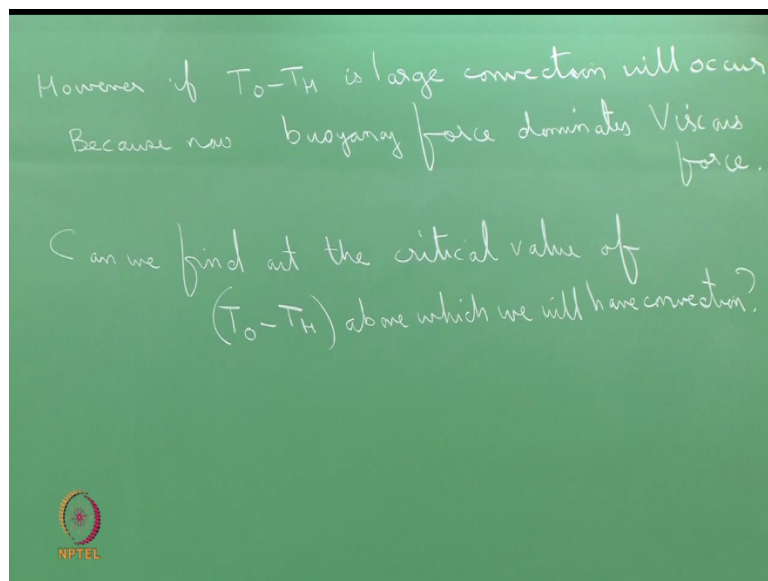 However if T₀-T_H is large convection will occur
Because now buoyancy force dominates Viscous
force.
Can we find out the critical value of
(T₀-T_H) above which we will have convection?
NPTEL